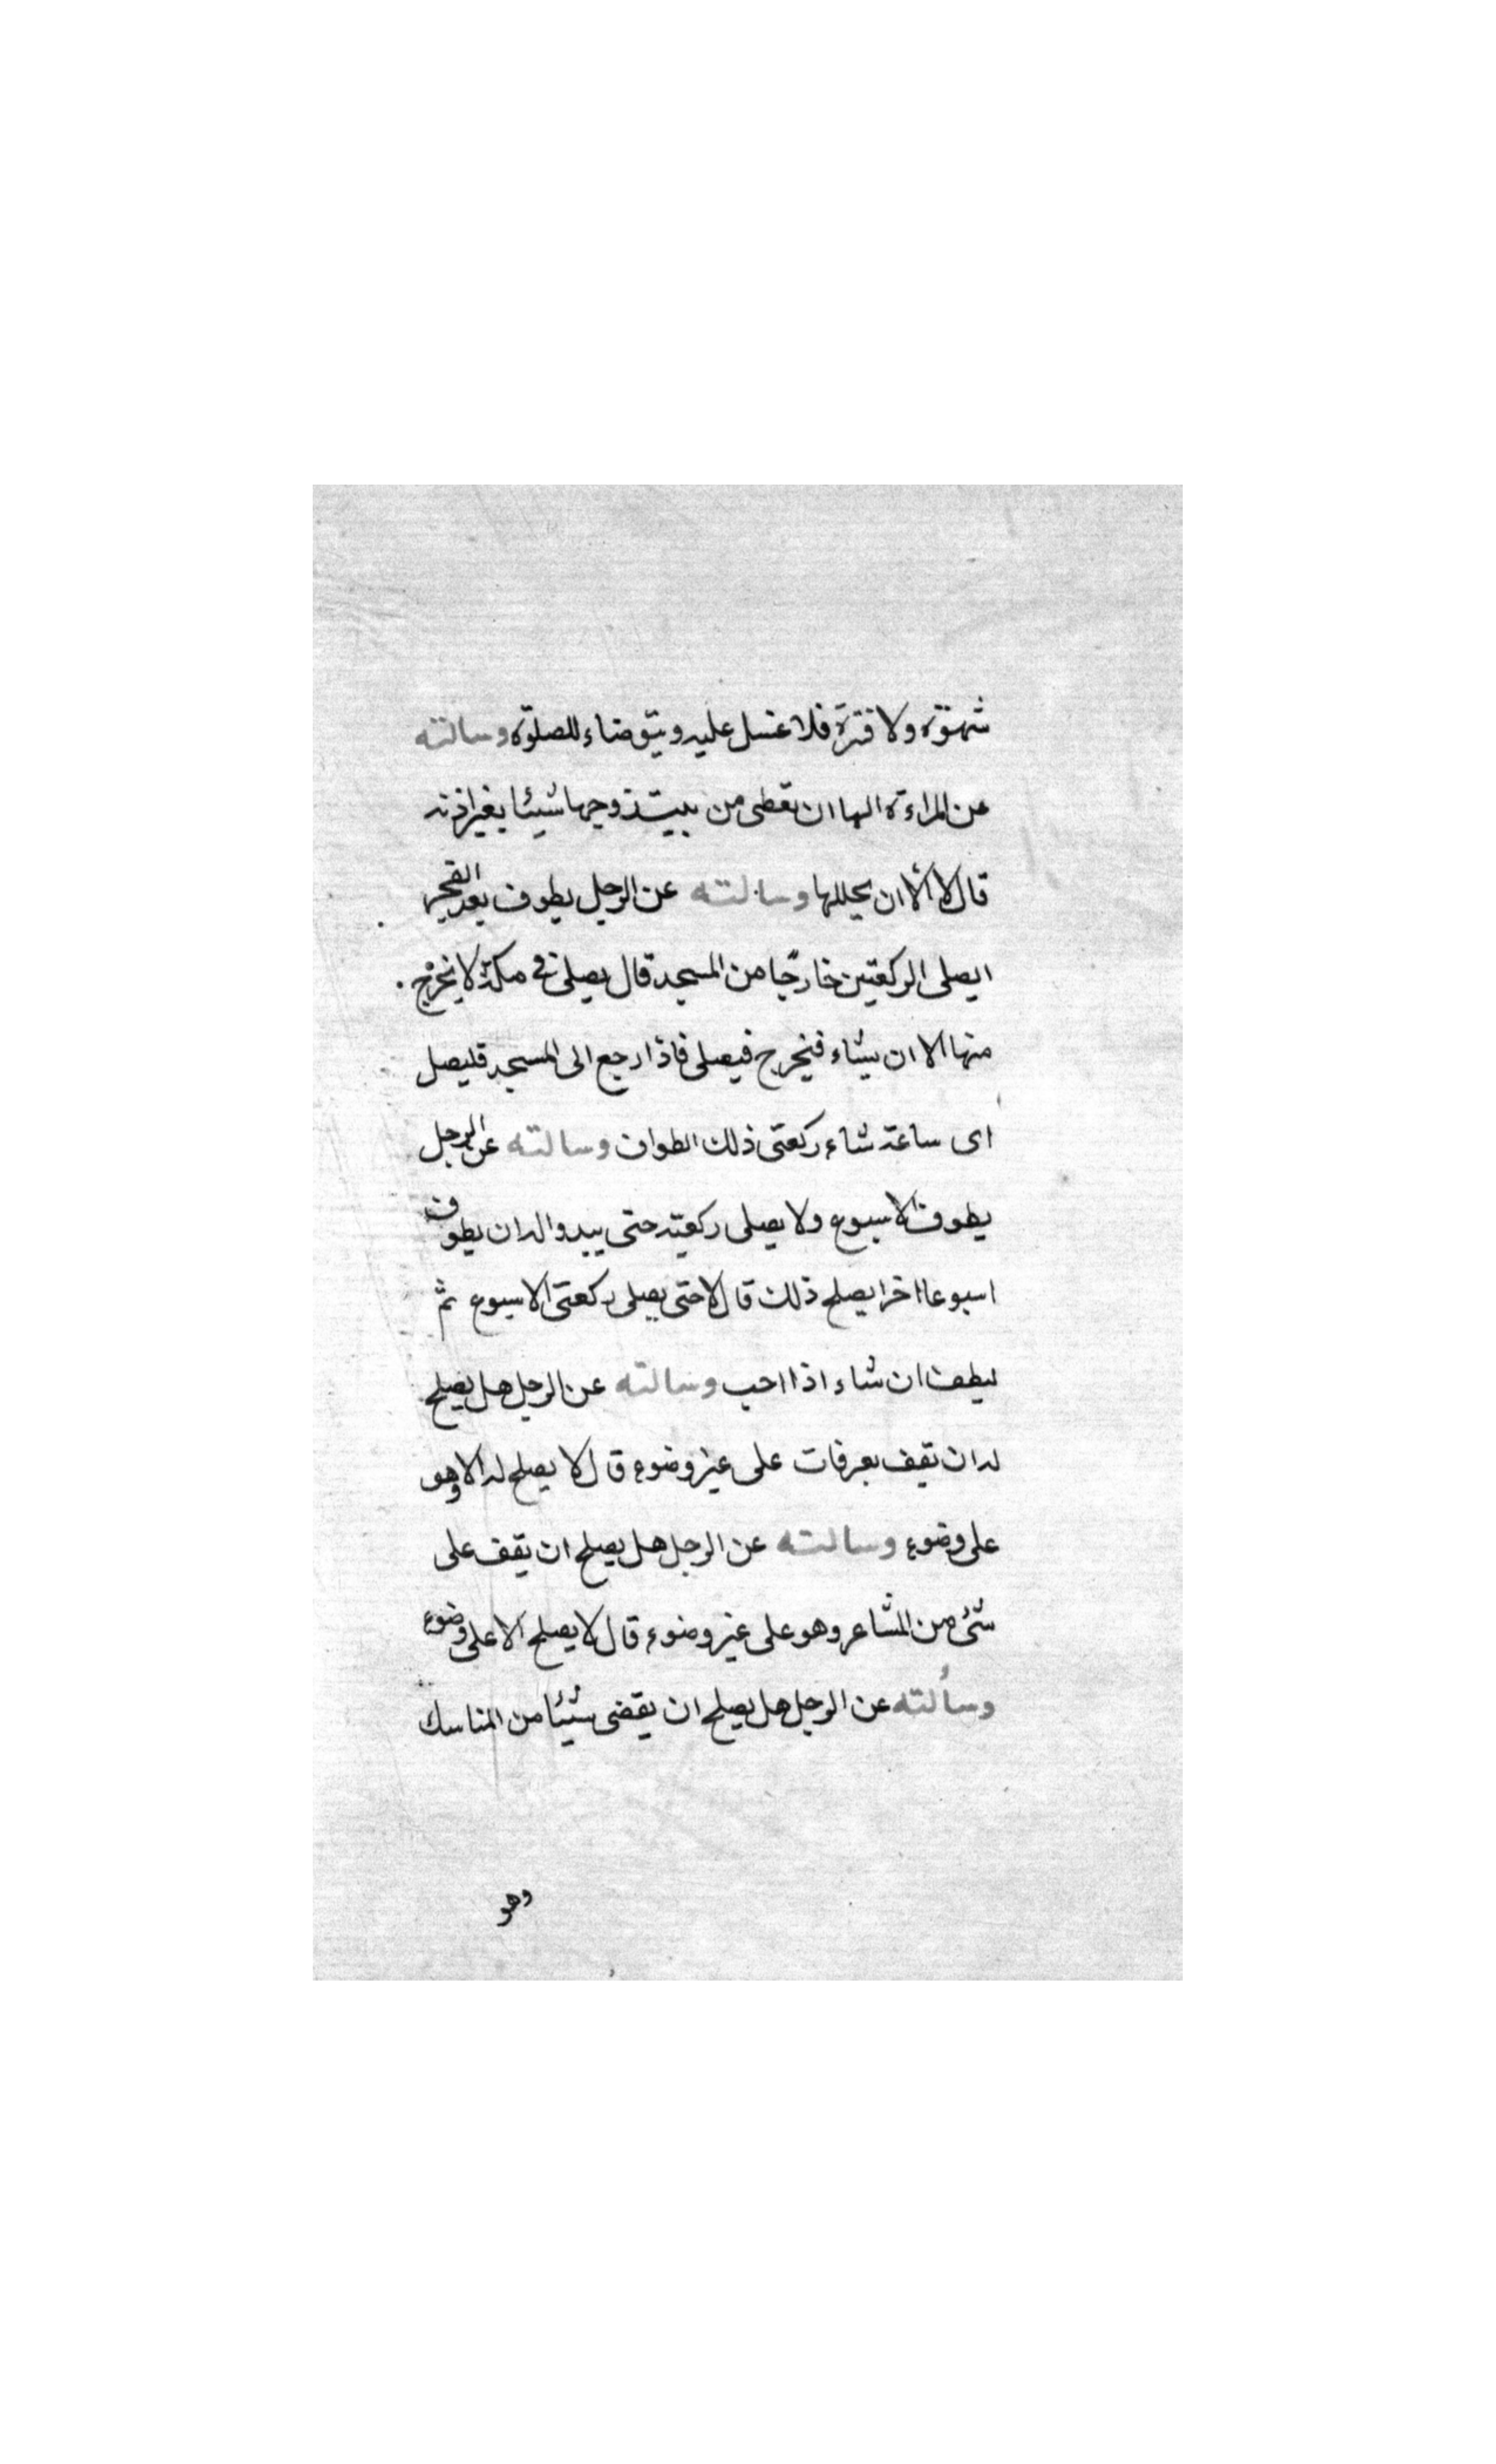 شهوة ولا فترة فلا غسل عليه ويتوضاء للصلوة وسالته
عن المراءة الها ان تعطى من بيت زوجها شيئا بغير اذنه
قال لا الا ان يحللها وسالته عن الرجل يطوف بعد الفجر
ايصلى الركعتين خارجا من المسجد قال يصلى فى مكة لا يخرج
منها الا ان يشاء فيخرج فيصلى فاذا رجع الى المسجد فليصل
اى ساعة شاء ركعتى ذلك الطواف وسالته عن الرجل
يطوف الاسبوع ولا يصلى ركعتيه حتى يبدو اله ان يطوف
اسبوعا اخر ايصلح ذلك قال لا حتى يصلى ركعتى الاسبوع ثم
ليطف ان شاء اذا احب وسالته عن الرجل هل يصلح
له ان يقف بعرفات على غير وضوء قال لا يصلح له الا وهو
على وضوء وسالته عن الرجل هل يصلح ان يقف على
شئ من المشاعر وهو على غير وضوء قال لا يصلح الا على وضوء
وسألته عن الرجل هل يصلح ان يقضى شيئا من المناسك
وهو